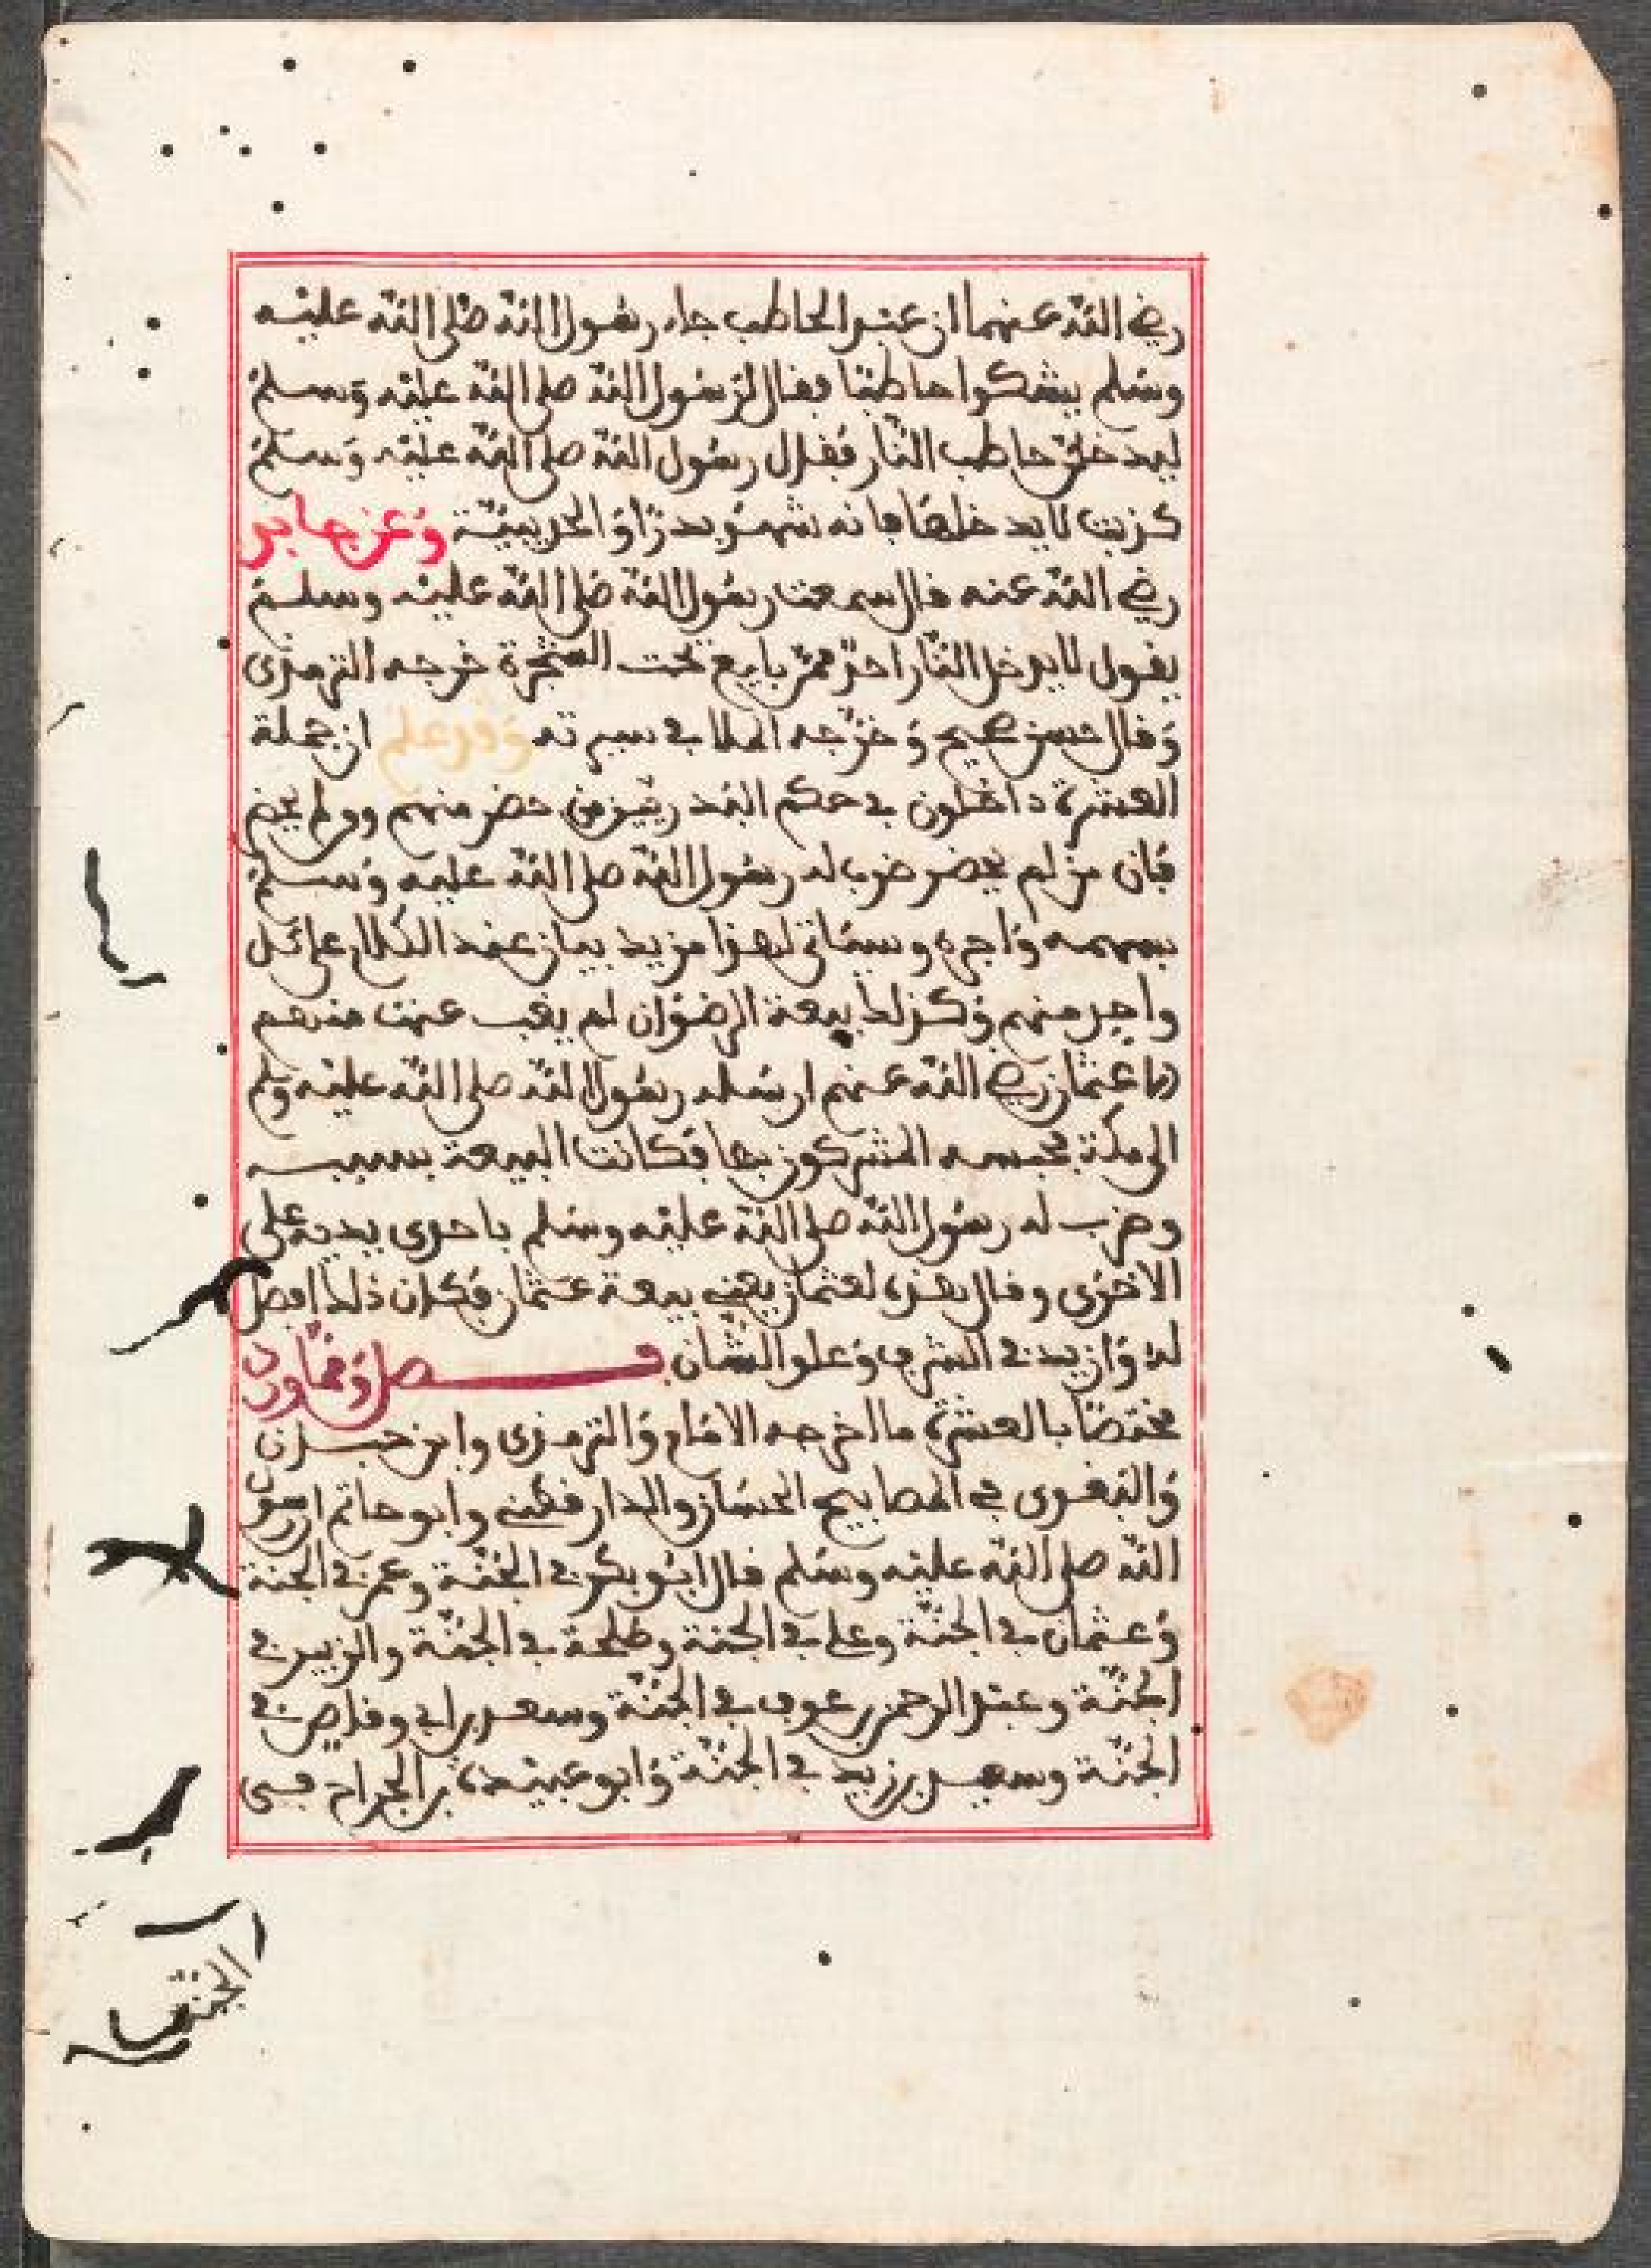 رضي الله عنهما ان عبدا لحاطب جاء رسول الله صلى الله عليه
وسلم يشكوا حاطبا فقال لرسول الله صلى الله عليه وسلم
ليدخلن حاطب النار فقال رسول الله صلى الله عليه وسلم
كذبت لا يدخلها فانه شهد بدرا والحديبية وعن جابر
رضي الله عنه قال سمعت رسول الله صلى الله عليه وسلم
يقول لا يدخل النار احد ممن بايع تحت الشجرة خرجه الترمذي
وقال حسن صحيح وخرجه الملا في سيرته وقد علم ان جملة
العشرة داخلون في حكم البدريين من حضر منهم وولم يحضر
فان من لم يحضر ضرب له رسول الله صلى الله عليه وسلم
بسهمه واجره وسياتي لهذا مزيد بيان عند الكلام على كل
واحد منهم وكذلك بيعة الرضوان لم يغب عنها منهم
الا عثمان رضي الله عنهم ارسله رسول الله صلى الله عليه وسلم
الى مكة فحبسه المشركون بها فكانت البيعة بسببه
وضرب له رسول الله صلى الله عليه وسلم باحدى يديه على
الاخرى وقال هذه لعثمان يعني بيعة عثمان فكان ذلك افضل
له وازيد في الشرف وعلو الشان فصل ومما ورد
مختصا بالعشرة ما اخرجه الامام والترمذي وابن حبان
والبغوي في المصابيح الحسان والدارقطني وابو حاتم ان رسول
الله صلى الله عليه وسلم قال ابو بكر في الجنة وعمر في الجنة
وعثمان في الجنة وعلي في الجنة وطلحة في الجنة والزبير في
الجنة وعبد الرحمن بن عوف في الجنة وسعد بن ابي وقاص في
الجنة وسعيد بن زيد في الجنة وابو عبيدة بن الجراح في
الجنة